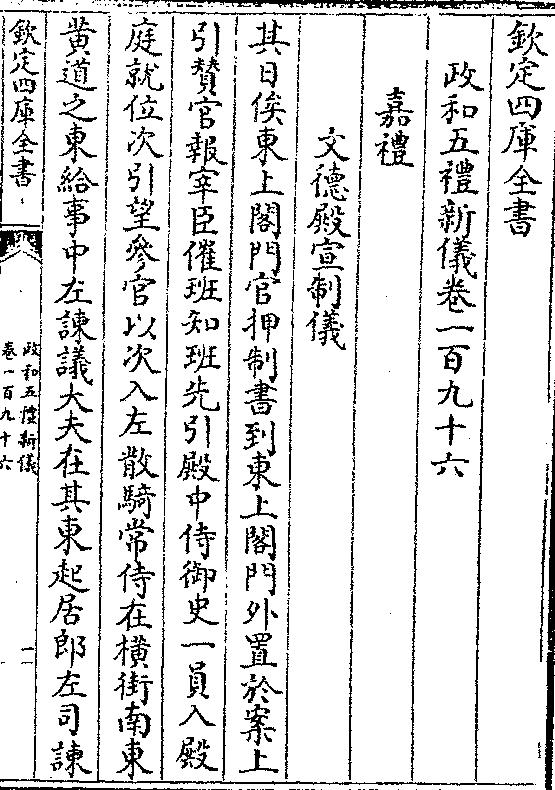 欽定四庫全書
政和五禮新儀卷一百九十六
嘉禮
文德殿宣制儀
其日俟東上閤門官押制書到東上閤門外置於案上
引贊官報宰臣催班知班先引殿中侍御史一員入殿
庭就位次引望參官以次入左散騎常侍在橫街南東
黃道之東給事中左諫議大夫在其東起居郎左司諫
欽定四庫全書
政和五禮新儀
卷一百九十六
一